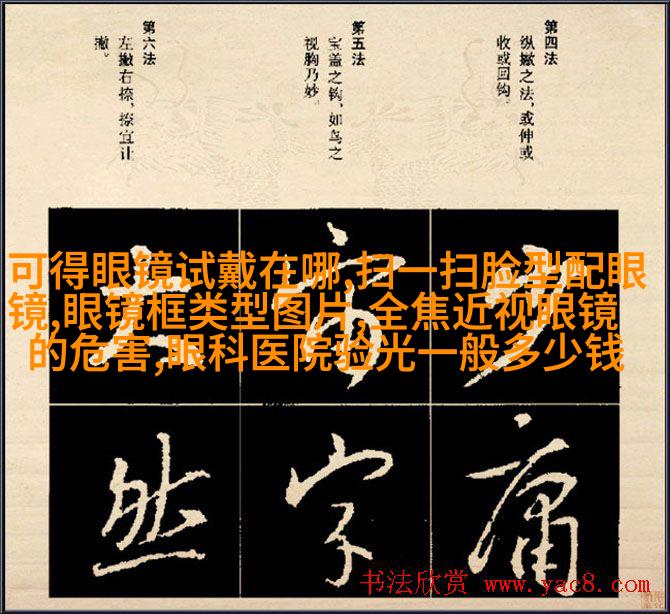 第四法
纵撇之法，或伸或
收或回钩。
第五法
宝盖之钩，如鸟之
视胸乃妙。
第六法
左撇右捺，捺宜让
撇。
可得眼镜试戴在哪,扫一扫脸型配眼
镜,眼镜框类型图片,全焦近视眼镜
的危害,眼科医院验光一般多少钱
庸
字
然
书法欣赏 www.yac8.com